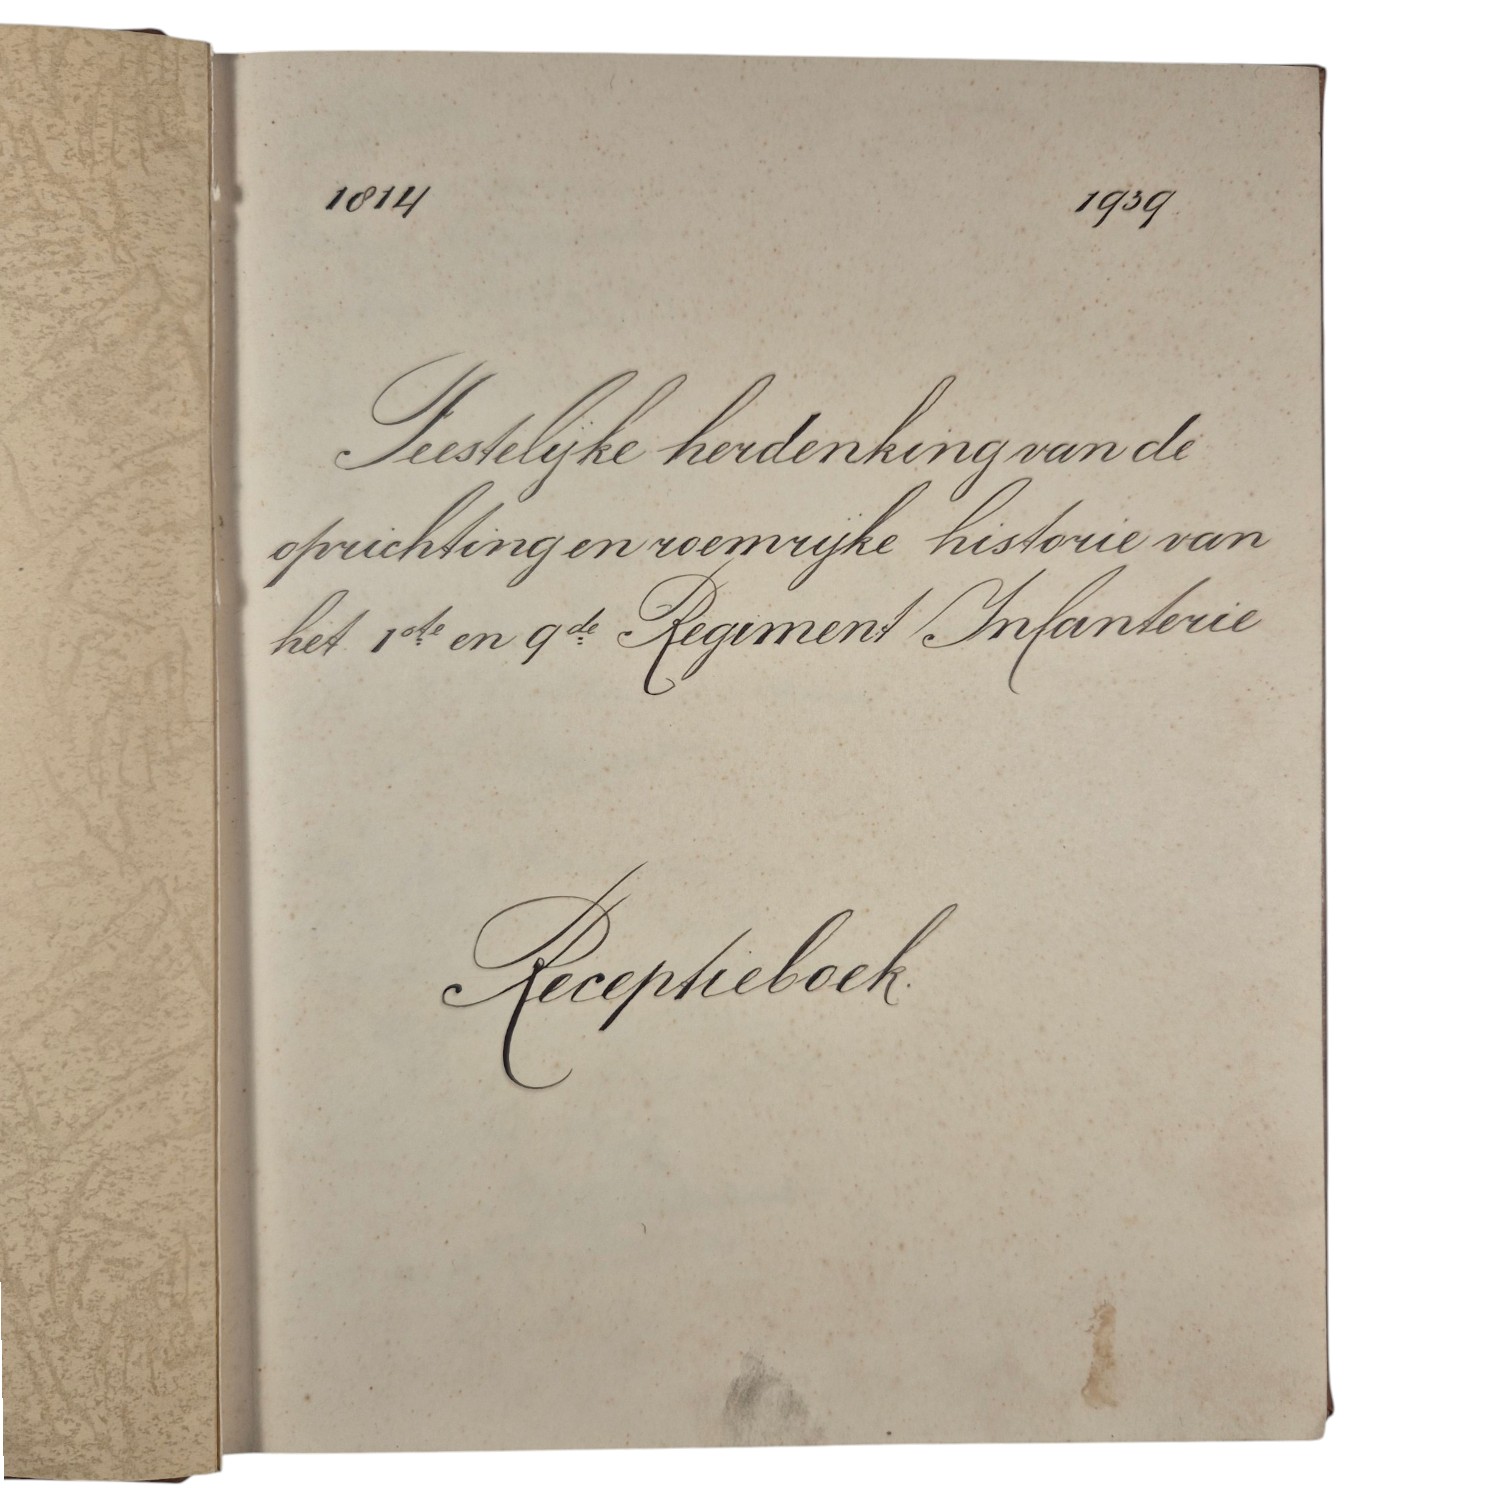 1814 1939
Feestelijke herdenking van de
oprichting en roemrijke historie van
het 1ste en 9de Regiment Infanterie
Receptieboek.